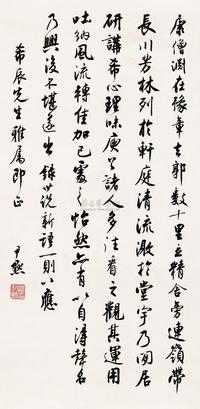 康僧淵在豫章去郭數十里立精舍旁連嶺帶
長川芳林列於軒庭清流激於堂宇乃閒居
研講希心理味庾公諸人多往看之觀其運用
吐納風流轉佳加已處之怡然亦有以自得聲名
乃興後不堪遂出 錄世說新語一則以應
希辰先生雅屬即正
尹默